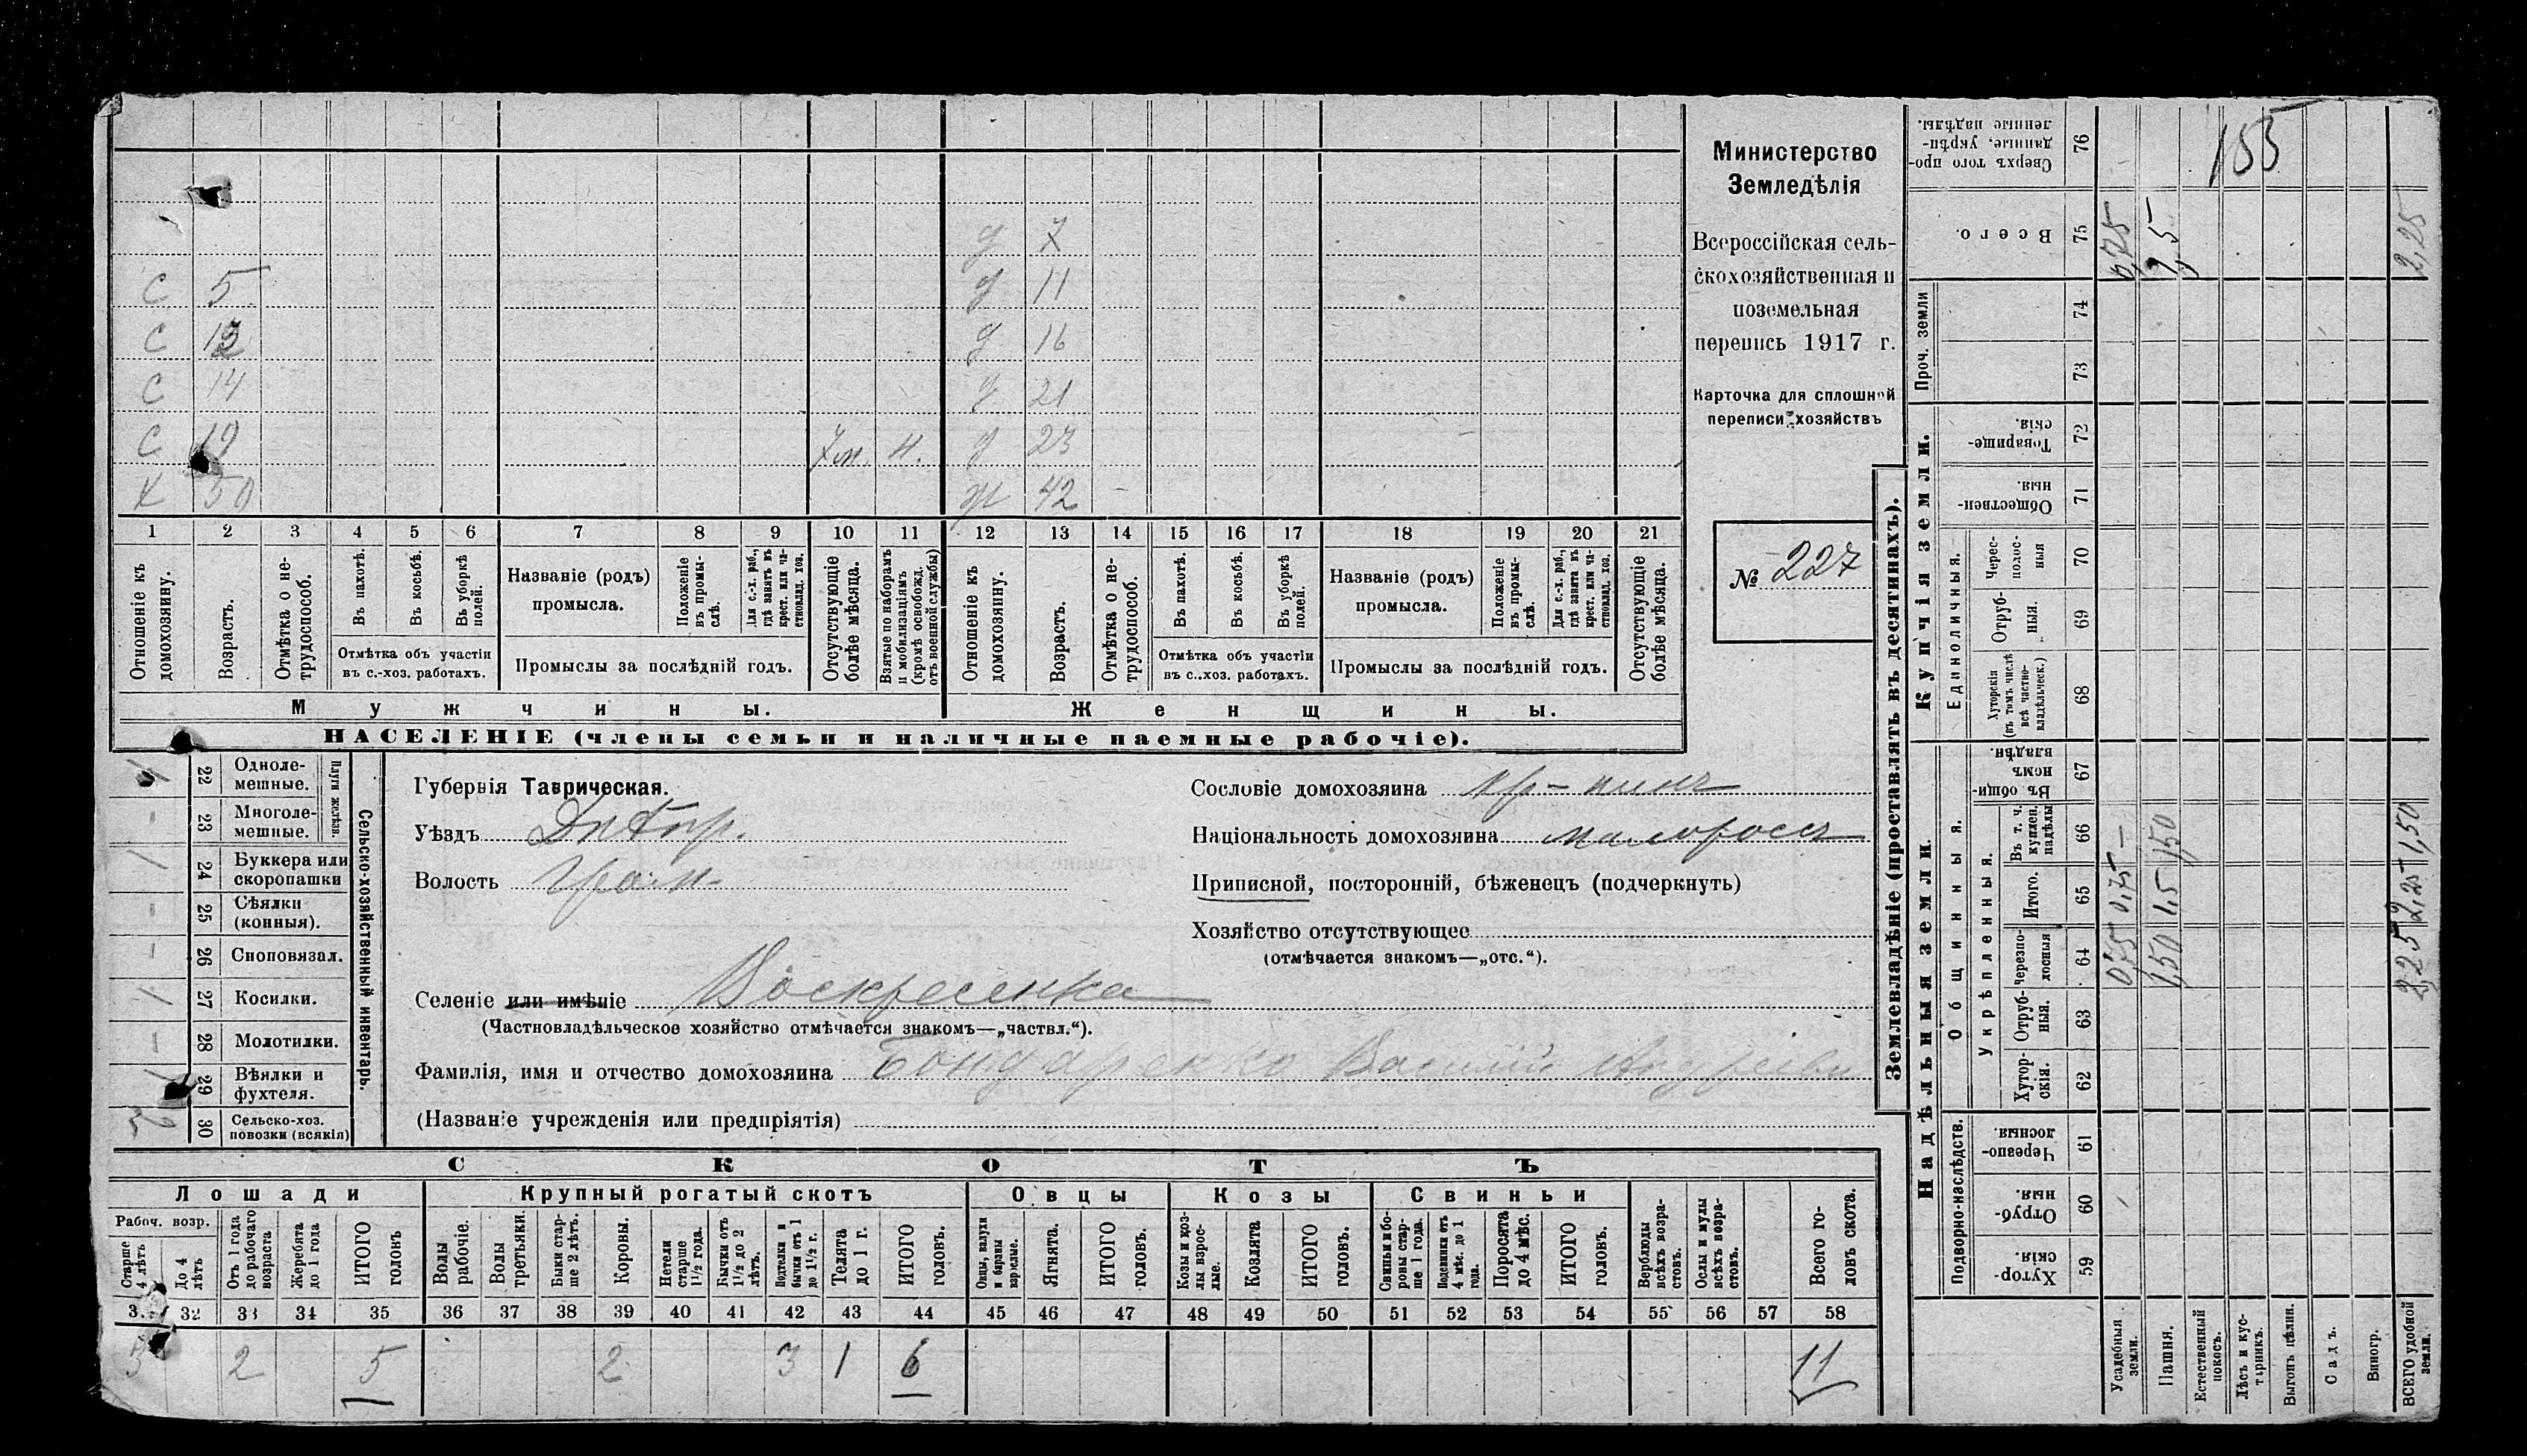 Министерство
Земледѣлія
Всероссійская сель-
скохозяйственная и
поземельная
перепись 1917 г.
Карточка для сплошной
переписи хозяйствъ
№ 227
д 7
С 5 д 11
С 13 д 16
С 14 д 21
С 19 7 м. н. д 23
Х 50 ж 42 -
1 2 3 4 5 6 7 8 9 10 11 12 13 14 15 16 17 18 19 20 21
Отношеніе къ домохозяину.
Возрастъ.
Отмѣтка о не-трудоспособ.
Въ пахотѣ.
Въ косьбѣ.
Въ уборкѣ полей.
Отмѣтка объ участіи
въ с.-хоз. работахъ.
Названіе (родъ)
промысла.
Положеніе въ промы-слѣ.
Для с.-х. раб., гдѣ занятъ въ крест. или ча-стновлад. хоз.
Промыслы за послѣдній годъ.
Отсутствующіе болѣе мѣсяца.
Взятые по наборамъ и мобилизаціямъ (кромѣ освобожд. отъ военной службы)
Отношеніе къ домохозяину.
Возрастъ.
Отмѣтка о не-трудоспособ.
Въ пахотѣ.
Въ косьбѣ.
Въ уборкѣ полей.
Отмѣтка объ участіи
въ с..хоз. работахъ.
Названіе (родъ)
промысла.
Положеніе въ промы-слѣ.
Для с.-х. раб., гдѣ занята въ крест. или ча-стновлад. хоз.
Промыслы за послѣдній годъ.
Отсутствующіе болѣе мѣсяца.
Мужчины.
Женщины.
НАСЕЛЕНІЕ (члены семьи и наличные наемные рабочіе).
Сельско-хозяйственный инвентарь.
Плуги желѣзн.
22 Одноле-мешные.
- 23 Многоле-мешные.
/ 24 Буккера или скоропашки
- 25 Сѣялки (конныя).
- 26 Сноповязал.
/ 27 Косилки.
- 28 Молотилки.
29 Вѣялки и фухтеля.
30 Сельско-хоз. повозки (всякія)
Губернія Таврическая.
Уѣздъ Днѣпр.
Волость
Селеніе или имѣніе Воскресенка
(Частновладѣльческое хозяйство отмѣчается знакомъ—„частвл.“).
Фамилія, имя и отчество домохозяина Бондаренко Василій Андреіви
(Названіе учрежденія или предпріятія)
Сословіе домохозяина кр-нинъ
Національность домохозяина малороссъ
Приписной, посторонній, бѣженецъ (подчеркнуть)
Хозяйство отсутствующее
(отмѣчается знакомъ—„отс.“).
СКОТЪ
Лошади
Крупный рогатый скотъ
Овцы
Козы
Свиньи
Рабоч. возр.
Старше 4 лѣтъ
До 4 лѣтъ
Отъ 1 года до рабочаго возраста
Жеребята до 1 года
ИТОГО головъ
Волы рабочіе.
Волы третьяки.
Быки стар-ше 2 лѣтъ.
Коровы.
Нетели старше 1½ года.
Бычки отъ 1½ до 2 лѣтъ.
Подтелки и бычки отъ 1 до 1½ г.
Телята до 1 г.
ИТОГО головъ.
Овцы, валухи и бараны взрослые.
Ягнята.
ИТОГО головъ.
Козы и коз-лы взрос-лые.
Козлята
ИТОГО головъ.
Свиньи и бо-ровы стар-ше 1 года.
Подсвинки отъ 4 мѣс. до 1 года.
Поросята до 4 мѣс.
ИТОГО головъ.
Верблюды всѣхъ возра-стовъ.
Ослы и мулы всѣхъ возра-стовъ.
Всего го-ловъ скота.
32 33 34 35 36 37 38 39 40 41 42 43 44 45 46 47 48 49 50 51 52 53 54 55 56 57 58
3 2 5 2 3 1 6 11
Землевладѣніе (проставлять въ десятинахъ).
Купчія земли.
Надѣльныя земли.
Проч. земли
Единоличныя.
Общинныя.
Укрѣпленныя.
Подворно-наслѣдств.
Сверхъ того про-данные, укрѣп-ленные надѣлы. 76
155
Всего. 75 0,75 1,5 2,25
74
73
Товарище-скія. 72
Обществен-ныя. 71
Черес-полос-ныя 70
Отруб-ныя. 69
Хуторскія (въ томъ числѣ всѣ частно-владѣльческ.) 68
Въ общи-номъ владѣн. 67
Въ т. ч. куплен. надѣлы 66 — 1,50 1,50
Итого. 65 0,75 1,5 2,25
Черезпо-лосныя 64 0,75 1,50 2,25
Отруб-ныя. 63
Хутор-скія. 62
Черезпо-лосныя. 61
Отруб-ныя. 60
Хутор-скія. 59
Усадебныя земли.
Пашня.
Естественный покосъ.
Лѣсъ и кус-тарникъ.
Выгонъ цѣлин.
Садъ.
Виногр.
ВСЕГО удобной земли.